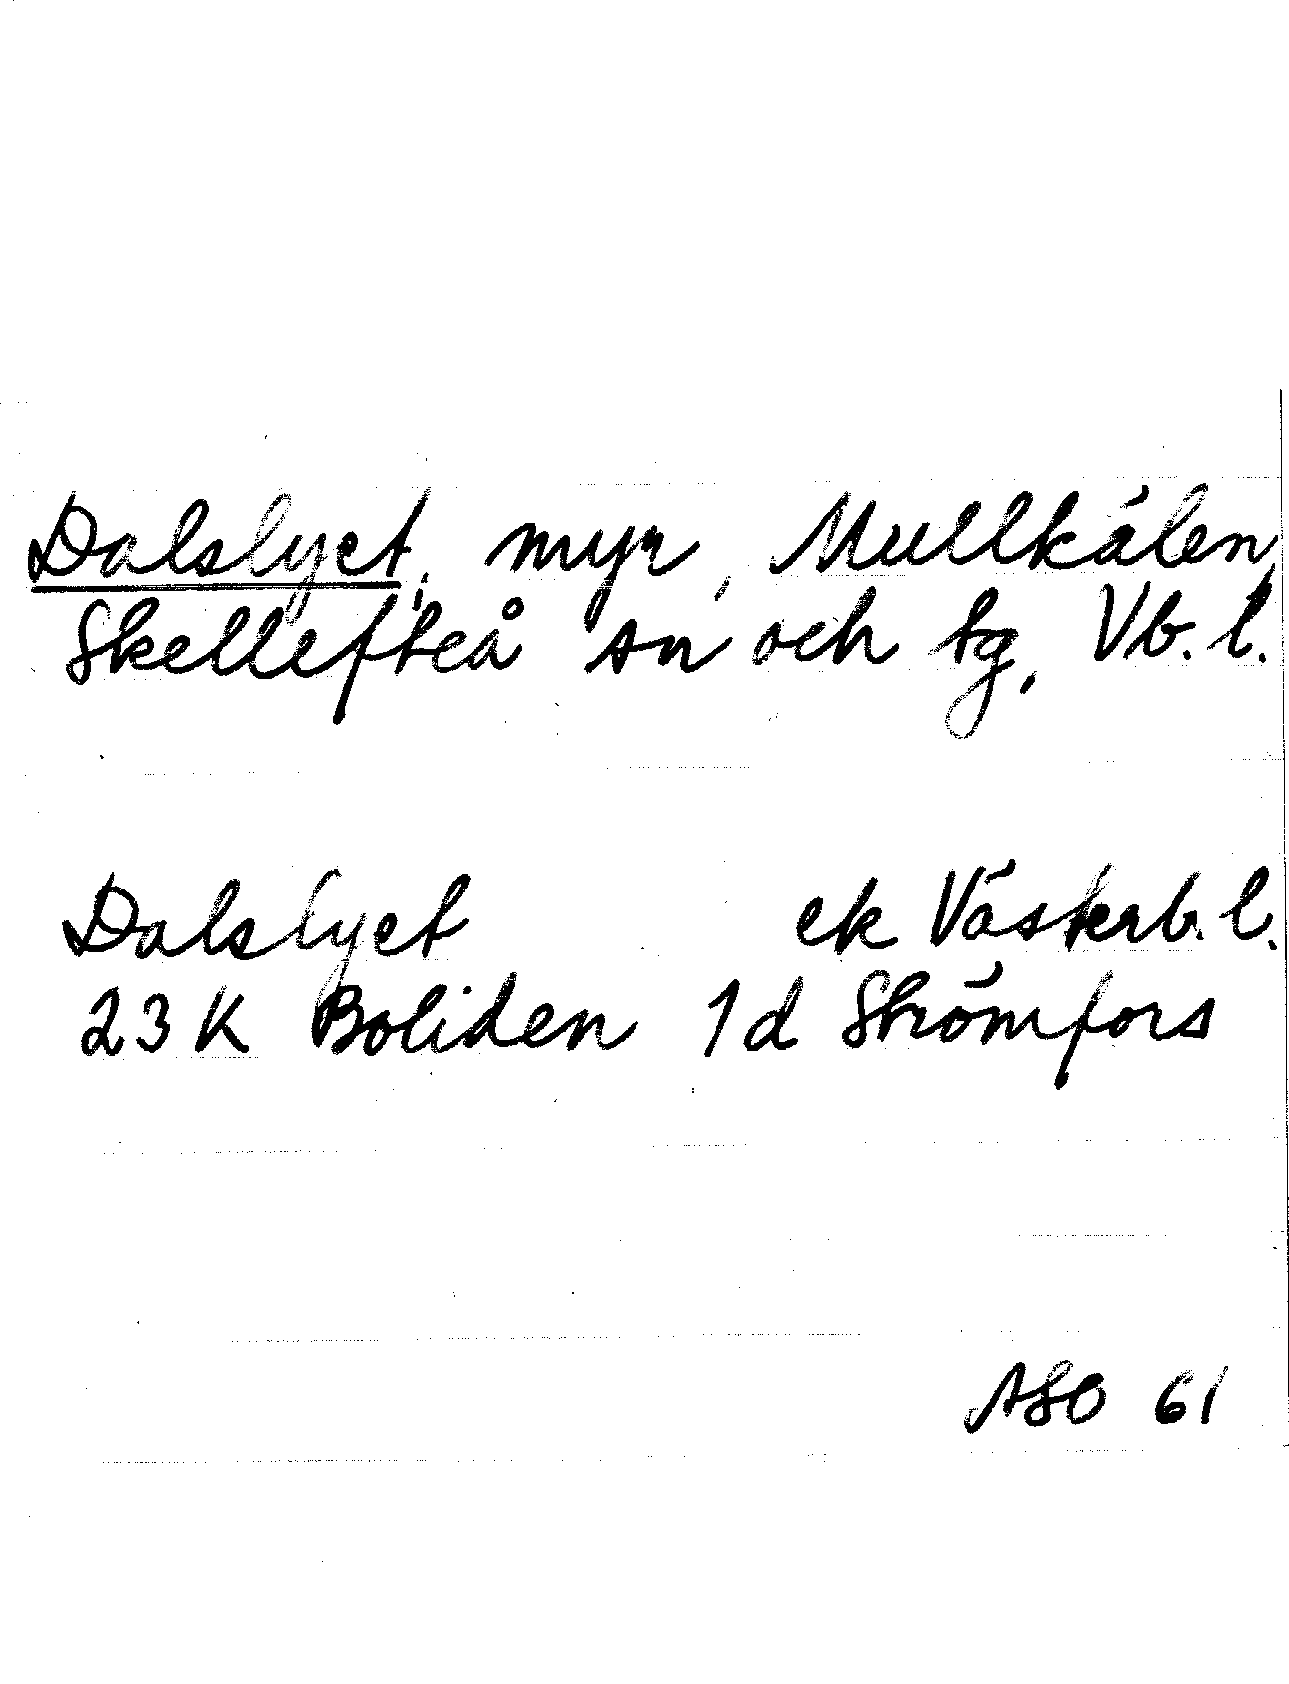 Dalslyet, myr, Mullkälen,
Skellefteå sn och tg, Vb. l.
Dalslyet ek Västerb. l.
23 K Boliden 1d Strömfors
ASO 61